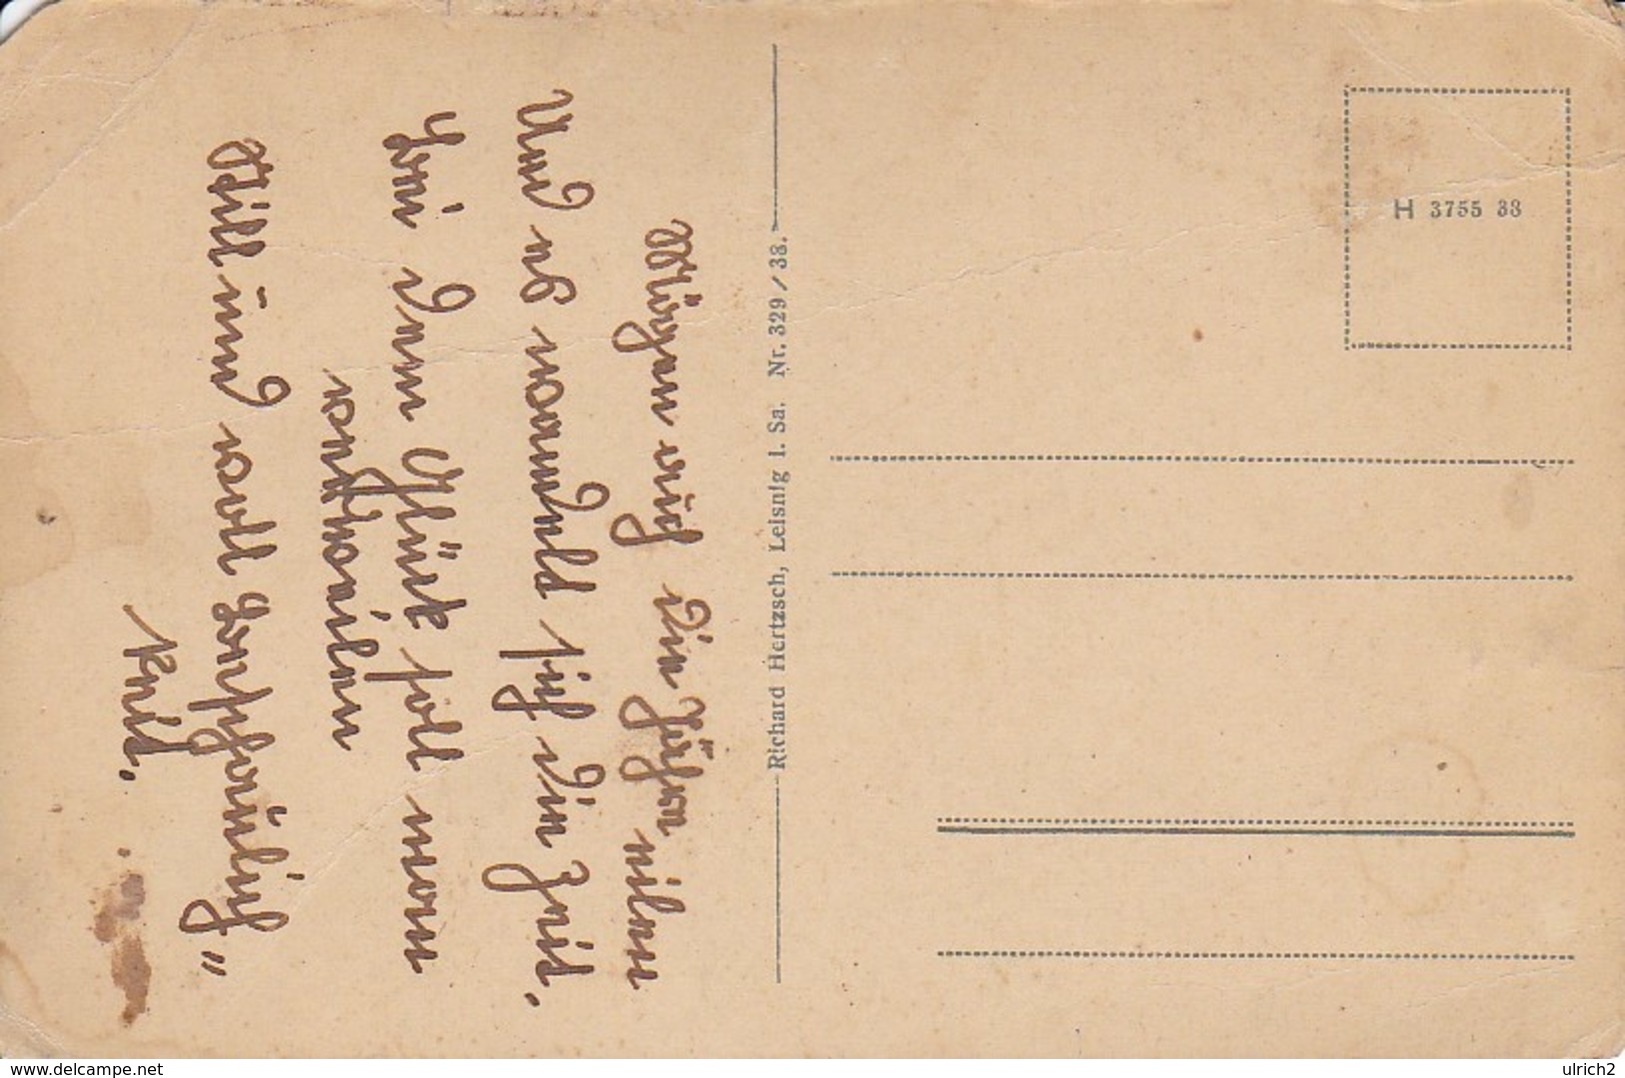 Mögen auch die Jahre eilen
Und es wandelt sich die Zeit.
Bei dem Glück soll man
verweilen
Still und voll Beschaulich"
keit.
Richard Hertzsch, Leisnig i. Sa. Nr. 329/38.
H 3755 38
www.delcampe.net
ulrich2